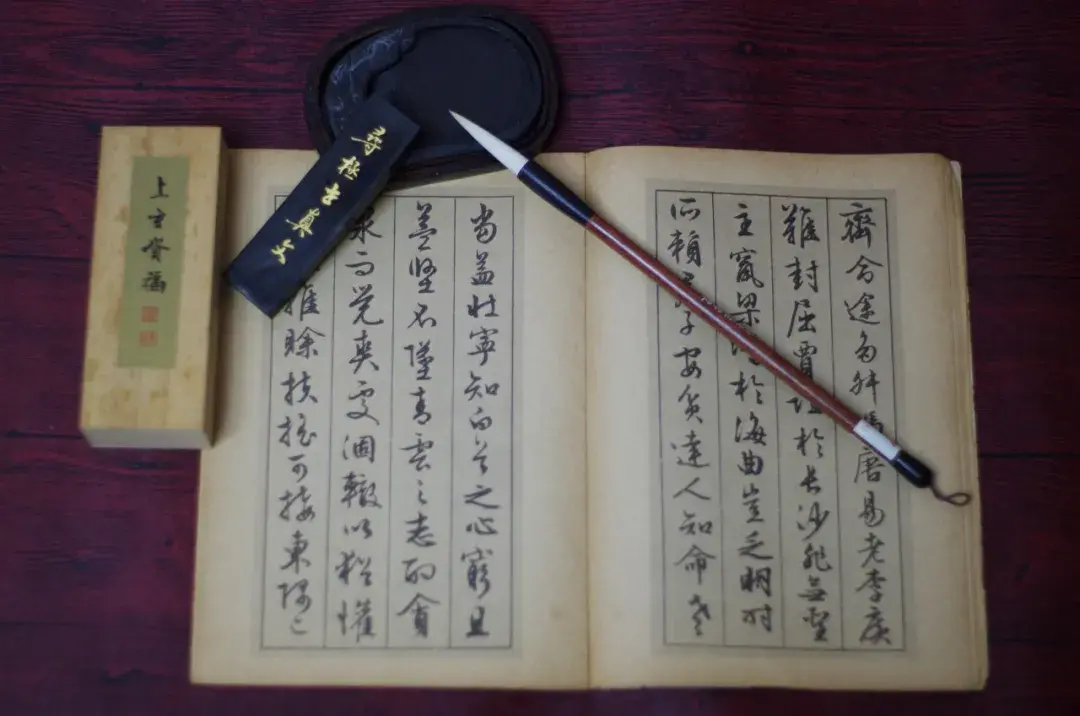 上主福
尋極真文
齊命途多舛馮唐易老李廣
難封屈賈誼於長沙非無聖
主竄梁鴻於海曲豈乏明时
所賴君子安貧達人知命老
當益壯寧知白首之心窮且
益堅不墜青雲之志酌貪
泉而覺爽處涸轍以猶懽
雖賒扶搖可接東隅已